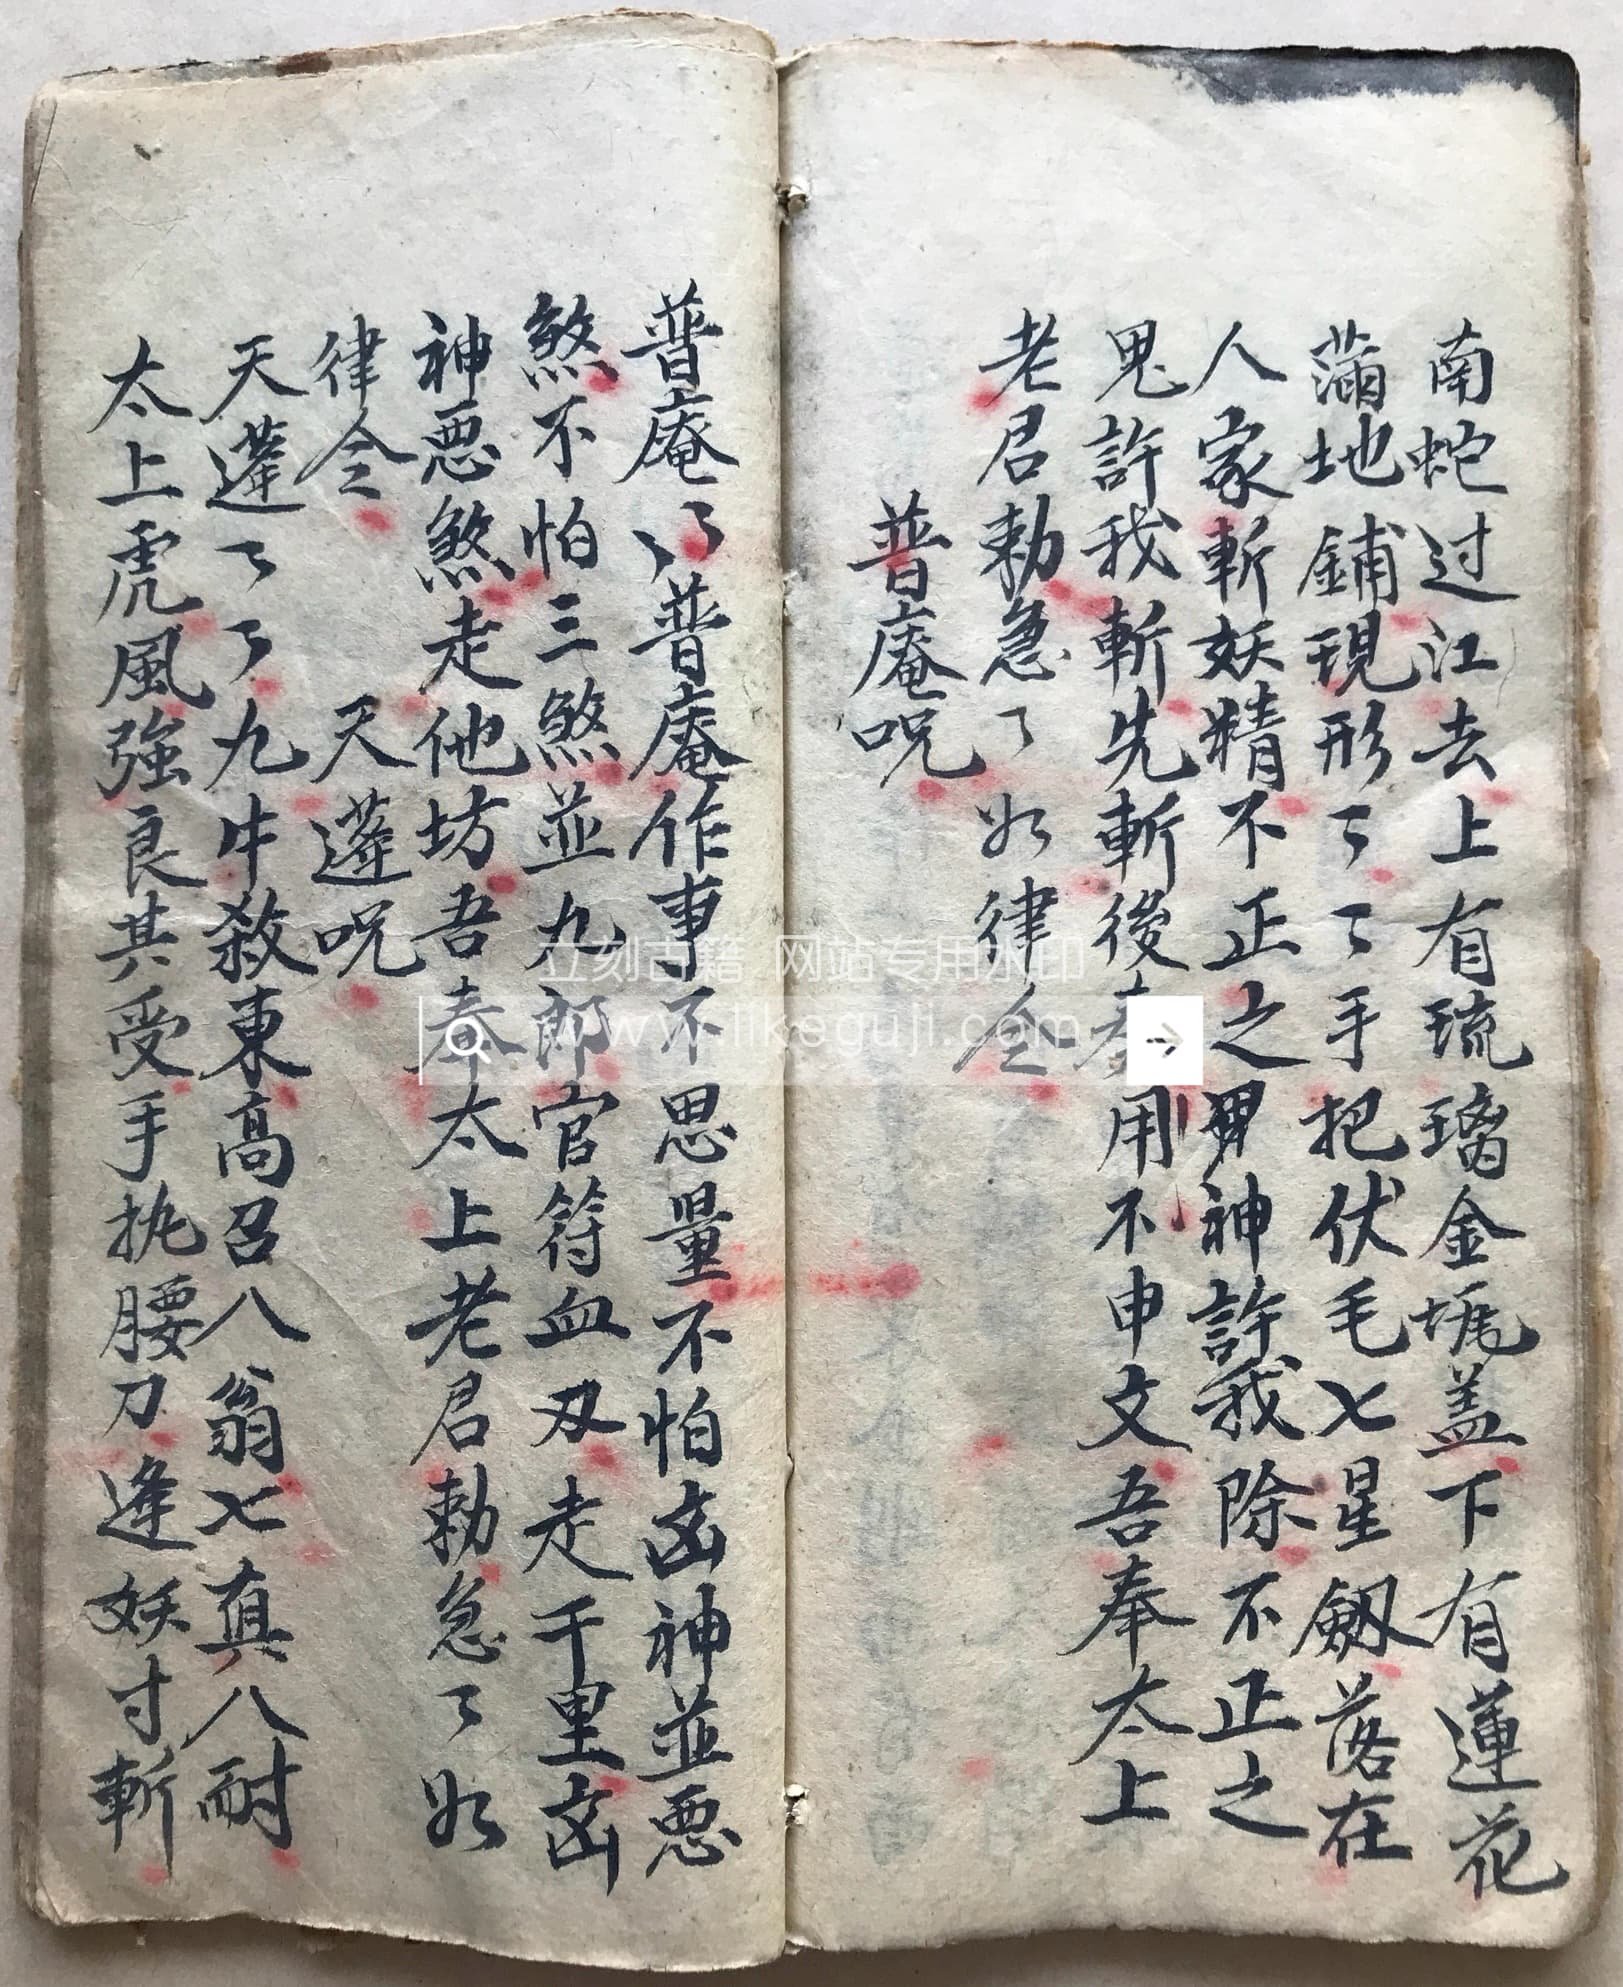 南蛇过江去上有琉璃金塊盖下有蓮花
蒲地鋪現形了了手把伏毛七星劔落在
人家斬妖精不正之男神許我除不正之
鬼許我斬先斬後奏用不申文吾奉太上
老君勅急了如律令
普庵呪
普庵了普庵作事不思量不怕凶神並惡
煞不怕三煞並九郎官符血刃走千里凶
神惡煞走他坊吾奉太上老君勅急了如
律令 天蓬呪
天蓬了了九牛殺東高召八翁七真八耐
太上虎風強良其受手执腰刀逢妖寸斬
立刻古籍 网站专用水印
www.likeguji.com